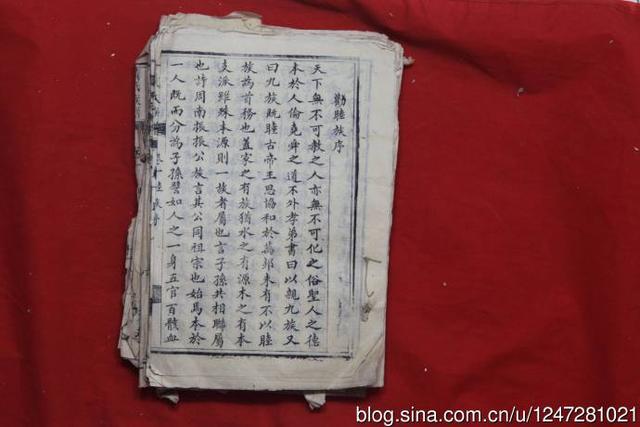 勸睦族序
天下無不可教之人亦無不可化之俗聖人之德
本於人倫堯舜之道不外孝弟書曰以親九族又
曰九族既睦古帝王思協和於萬邦未有不以睦
族為首務也蓋家之有族猶水之有源木之有本
支派雖殊本源則一故者屬也言子孫共相聯屬
也詩周南振振公族言其公同祖宗也始焉本於
一人既而分為子孫譬如人之一身五官百骸血
blog.sina.com.cn/u/1247281021